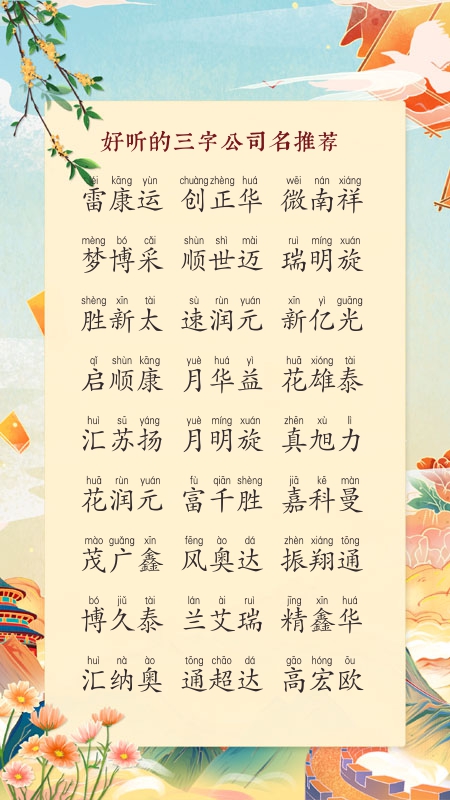 好听的三字公司名推荐
léi kāng yùn chuàng zhèng huá wēi nán xiáng
雷康运 创正华 微南祥
mèng bó cǎi shùn shì mài ruì míng xuán
梦博采 顺世迈 瑞明旋
shèng xīn tài sù rùn yuán xīn yì guāng
胜新太 速润元 新亿光
qǐ shùn kāng yuè huá yì huā xióng tài
启顺康 月华益 花雄泰
huì sū yáng yuè míng xuán zhēn xù lì
汇苏扬 月明旋 真旭力
huā rùn yuán fù qiān shèng jiā kē màn
花润元 富千胜 嘉科曼
mào guǎng xīn fēng ào dá zhèn xiáng tōng
茂广鑫 风奥达 振翔通
bó jiǔ tài lán ài ruì jīng xīn huá
博久泰 兰艾瑞 精鑫华
huì nà ào tōng chāo dá gāo hóng ōu
汇纳奥 通超达 高宏欧